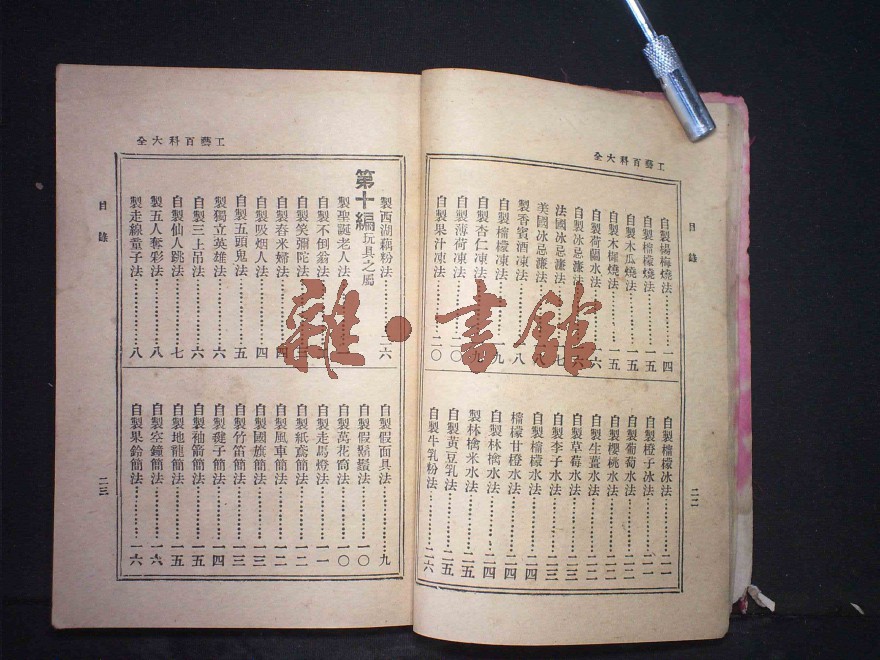 工藝百科大全
目錄
自製楊梅燒法 一四
自製檸檬燒法 一五
自製木瓜燒法 一五
自製木樨燒法 一五
自製荷蘭水法 六
自製冰忌濂法
法國冰忌濂法 七
美國冰忌濂法
製香賓酒凍法 八
自製檸檬凍法 九
自製杏仁凍法
自製薄荷凍法 二〇
自製果汁凍法 二〇
自製檸檬冰法 二一
自製橙子冰法 二一
自製葡萄水法 二二
自製櫻桃水法 二二
自製生薑水法 二二
自製草莓水法 二三
自製李子水法 二三
自製檸檬水法 二四
檸檬甘橙水法 二四
自製林檎水法 二四
製林檎米水法 二五
自製黃豆乳法 二五
自製牛乳粉法 二六
二二
工藝百科大全
目錄
製西湖藕粉法 二六
第十編 玩具之屬
製聖誕老人法
自製不倒翁法
自製笑彌陀法
自製舂米婦法 四
自製吸烟人法 四
自製五頭鬼法 五
製獨立英雄法 六
自製三上吊法 六
自製仙人跳法 七
製五人奪彩法 八
製走線童子法 八
自製假面具法 九
自製假鬍鬚法 一〇
自製萬花筒法 一〇
自製走馬燈法 一一
自製紙鳶簡法 一二
自製風車簡法 一三
自製國旗簡法 一三
自製竹笛簡法 一四
自製毽子簡法 一四
自製袖箭簡法 一五
自製地龍簡法 一五
自製空鐘簡法 一六
自製果鈴簡法 一六
二三
雜·書館